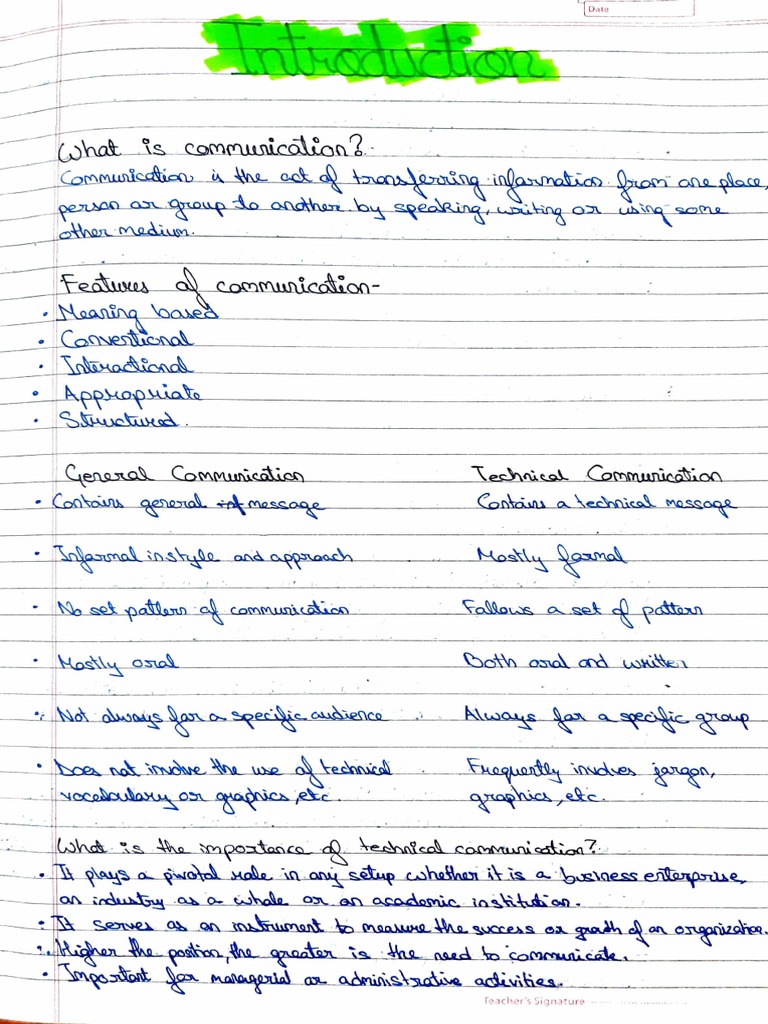 Date
Introduction
What is communication?
Communication is the act of transferring information from one place,
person or group to another by speaking, writing or using some
other medium.
Features of communication-
• Meaning based
• Conventional
• Interactional
• Appropriate
• Structured.
General Communication Technical Communication
• Contains general message Contains a technical message
• Informal in style and approach Mostly formal
• No set pattern of communication Follows a set of pattern
• Mostly oral Both oral and written
• Not always for a specific audience Always for a specific group
• Does not involve the use of technical Frequently involves jargon,
vocabulary or graphics, etc. graphics, etc.
What is the importance of technical communication?
• It plays a pivotal role in any setup whether it is a business enterprise,
an industry as a whole or an academic institution.
• It serves as an instrument to measure the success or growth of an organization.
• Higher the position, the greater is the need to communicate.
• Important for managerial or administrative activities.
Teacher's Signature